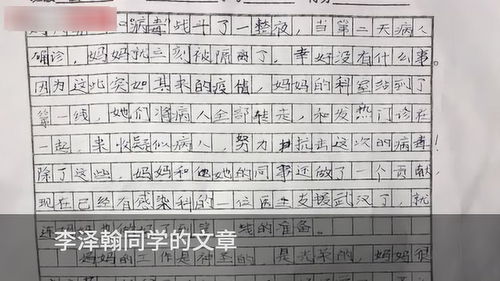 病毒战斗了一整夜，当第二天病人
确诊，妈妈就立刻被隔离了，幸好没有什么事。
因为这此突如其来的疫情，妈妈的科室站到了
第一线，她们将病人全部转走，和发热门诊在
一起，来收疑似病人，努力抗击这次的病毒！
除了这些，妈妈和她的同事还做了一个贡献，
现在已经有感染科的一位医生支援武汉了，就
连妈妈 线的准备。
李泽翰同学的文章
妈妈的工作是神圣的，是光荣的，妈妈很